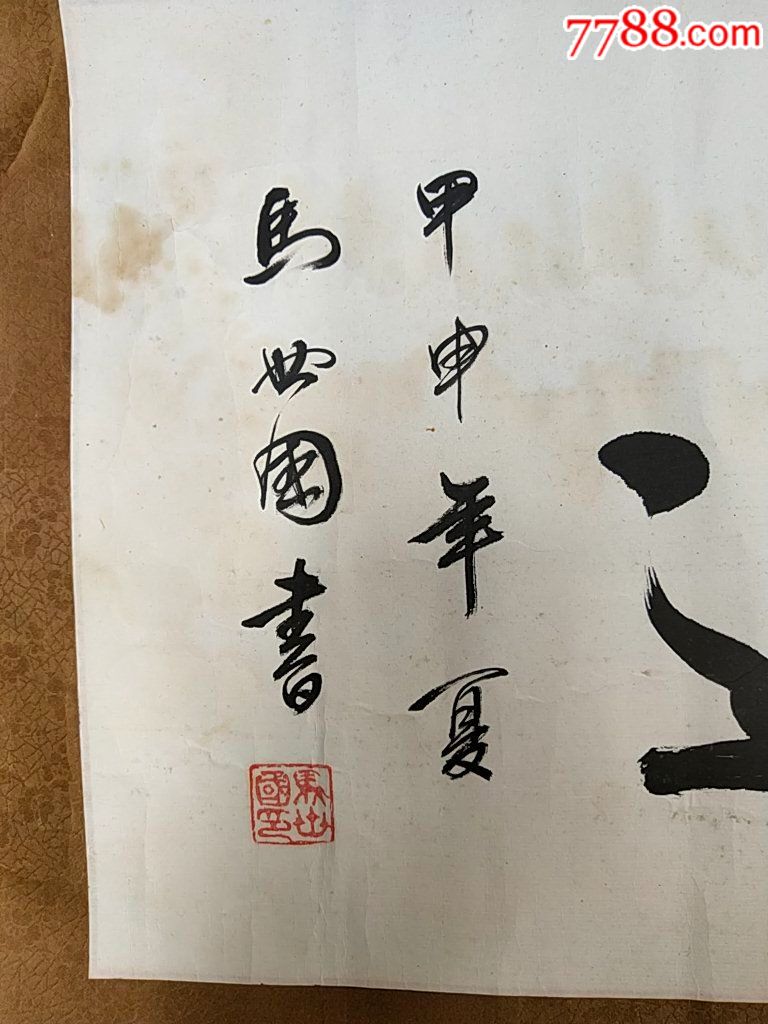 7788.com
甲申年夏
馬世國書
馬世國印